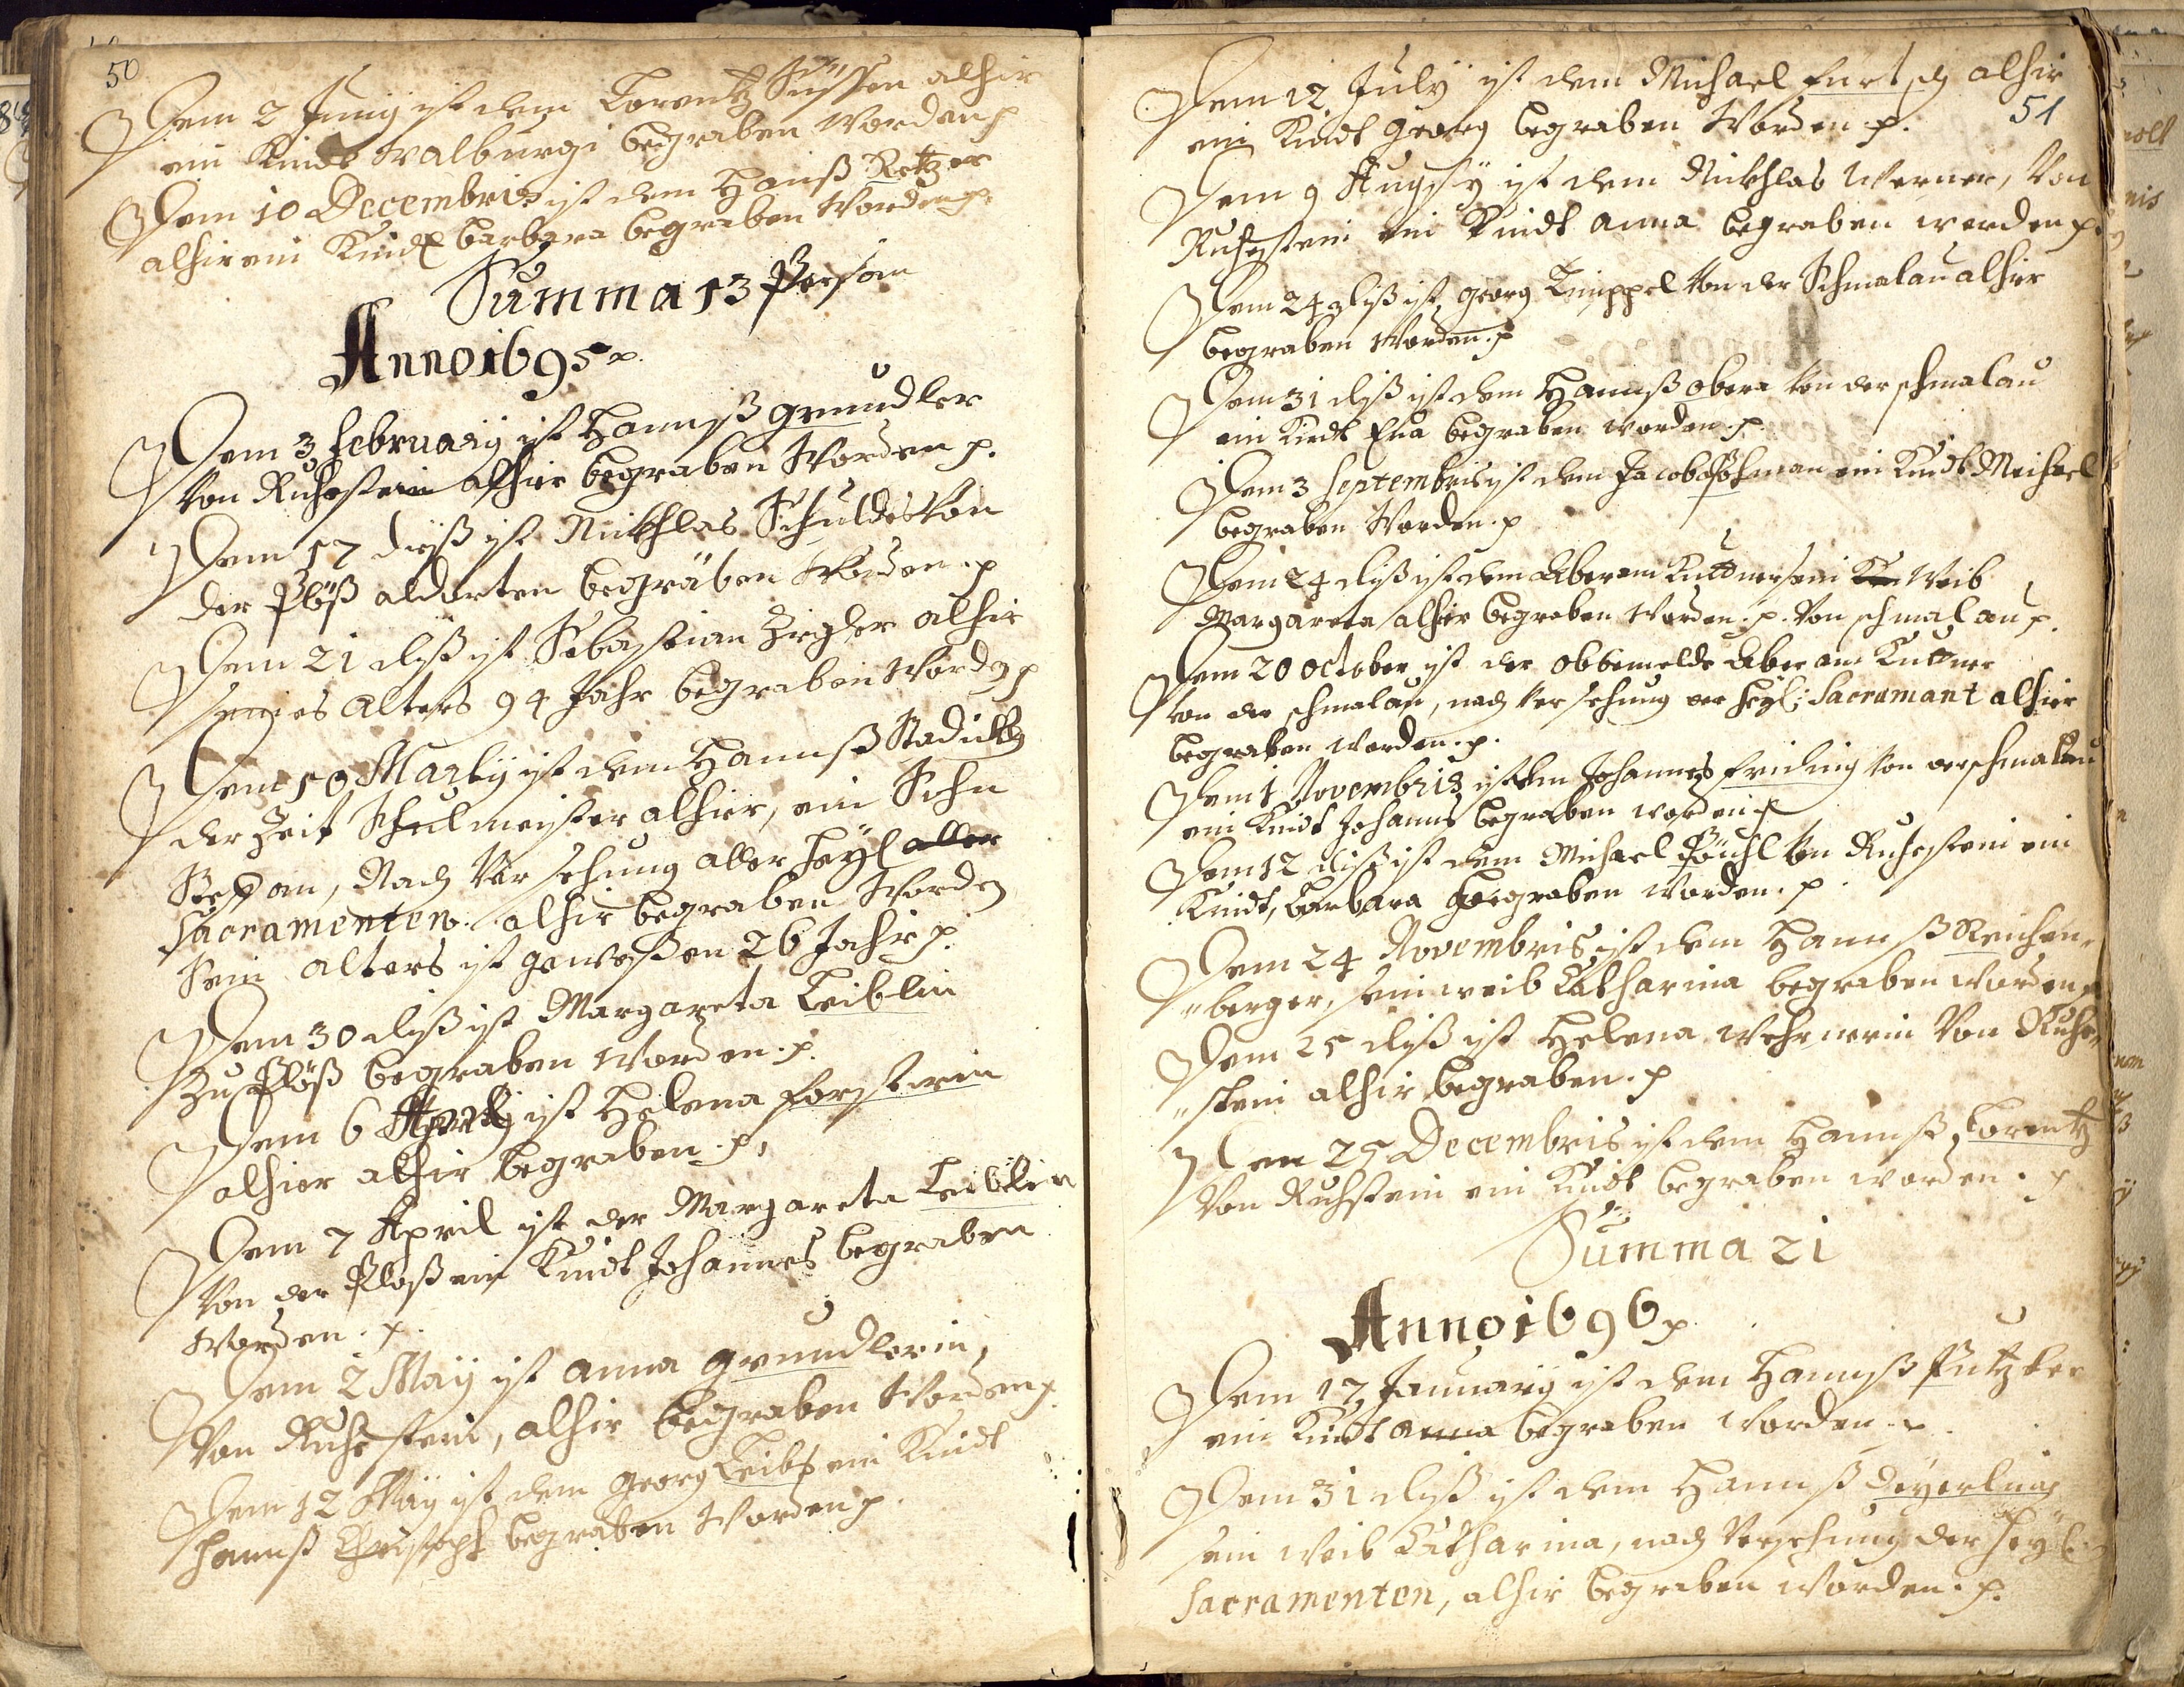 50
Dem 2 Junij ist dem Lorentz alhir
ein Kindt Walburgi begraben Worden p
Dem 10 Decembris ist dem Hanß Retzer
alhir ein Kindt barbara begraben Worden p.
Summa 13 Person
Anno 1695 p.
Dem 3 februarij ist Hannß grundler
Von Ruhestein alhier begraben Worden p.
Dem 17 diß ist Nickhlas Schuldes Von
der Plöß aldorten begraben Worden . p
Dem 21 diß ist Sebastian Zigler alhir
seines Alters 94 Jahr begraben Worden p
Dem 10 Martij ist dem Hannß
der Zeit Schulmeister alhier, ein Sohn
Stephan, Nach Versehung aller Heyl aller
Sacramenten. alhir begraben Worden
Sein alters ist gewesßen 26 Jahr p.
Dem 30 diß ist Margareta Leiblin
Zu Plöß begraben Worden . p.
Dem 6 ist Helena forsterin
alhier alhir begraben . p.
Dem 7 April ist der Margareta Leiblin
Von der Ploß ein Kindt Johannes begraben
Worden . p.
Dem 2 Maij ist anna grundlerin,
Von Ruhestein, alhir begraben Worden p
Dem 12 Maij ist dem georg Leibl ein Kindt
Hannß Christoph begraben Worden p.
Dem 12 July ist dem Michael furtsch alhir
51
ein Kindt georg begraben Worden . p.
Dem 9 Augsty ist dem Nickhlas Werner, Von
Ruhestein ein Kindt anna begraben worden p.
Dem 24 diß ist georg Von der Schmalau alhir
begraben Worden . p
Dem 31 diß ist dem Hannß obera Von der schmalau
ein Kindt Eua begraben worden . p.
Dem 3 septembris ist dem Jacob ein Kindt Michael
begraben Worden . p
Dem 24 diß ist dem Aberam Kuttner sein Weib
Margareta alhier begraben Worden . p. Von schmalau p.
Dem 20 october ist der obbemelde Aberam Kuttner
Von der schmalau, nach Versehung der heyl: Sacramant alhier
begraben worden . p.
Dem 1 Novembris ist dem Johannes friding Von der schmalau
ein Kindt Johannes begraben worden p
Dem 12 diß ist dem Michael Pöuhl Von Ruhestein ein
Kindt, barbara begraben worden . p.
Dem 24 Novembris ist dem Hannß Reichen„
„berger, sein weib Catharina begraben worden p
Dem 25 diß ist Helena Wehrnerin Von Ruhe„
„stein alhir begraben . p
Den 25 Decembris ist dem Hannß Lorentz
Von Ruhstein ein Kindt begraben worden . p
Summa 21
Anno 1696 p.
Dem 17 Januarij ist dem Hannß Putzker
ein Kindt anna begraben worden . p.
Dem 31 diß ist dem Hannß deyerling
sein weib Catharina, nach Versehung der heyl:
Sacramenten, alhir begraben worden . p.